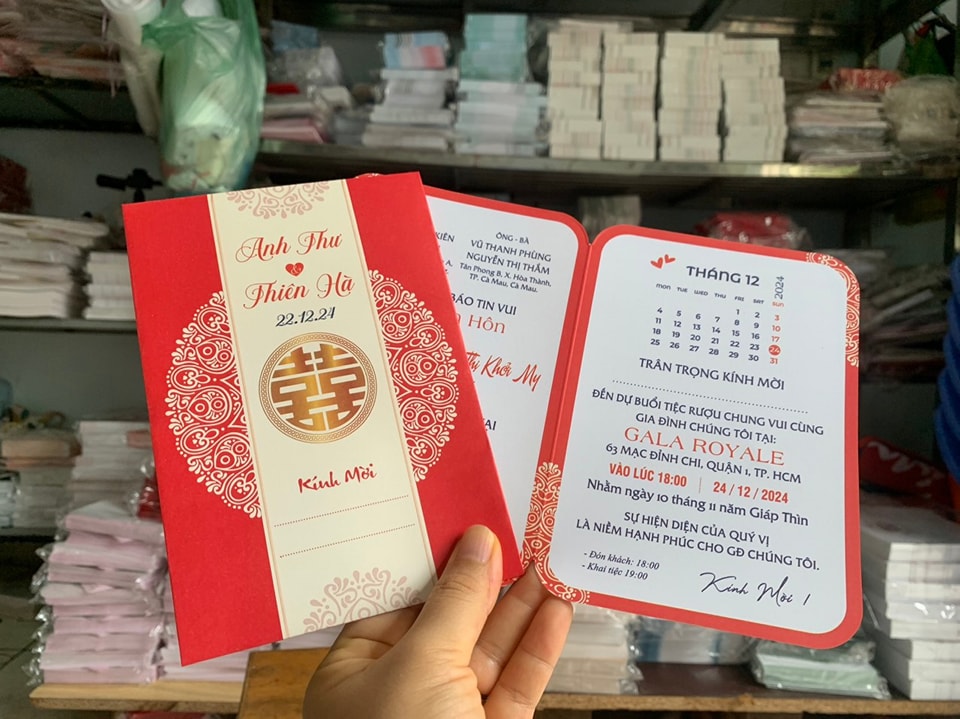 Anh Thư
&
Thiên Hà
22.12.24
Kính Mời
KIÊN
A,
A.
ÔNG - BÀ
VŨ THANH PHÙNG
NGUYỄN THỊ THẮM
Tân Phong B, X. Hòa Thành,
TP. Cà Mau, Cà Mau.
BÁO TIN VUI
Hôn
Thị Khởi My
TẠI
THÁNG 12
2024
MON TUE WED THU FRI SAT SUN
1 2 3
4 5 6 7 8 9 10
11 12 13 14 15 16 17
18 19 20 21 22 23 24
25 26 27 28 29 30 31
TRÂN TRỌNG KÍNH MỜI
ĐẾN DỰ BUỔI TIỆC RƯỢU CHUNG VUI CÙNG
GIA ĐÌNH CHÚNG TÔI TẠI:
GALA ROYALE
63 MẠC ĐĨNH CHI, QUẬN 1, TP. HCM
VÀO LÚC 18:00 | 24 / 12 / 2024
Nhằm ngày 10 tháng 11 năm Giáp Thìn
SỰ HIỆN DIỆN CỦA QUÝ VỊ
LÀ NIỀM HẠNH PHÚC CHO GĐ CHÚNG TÔI.
- Đón khách: 18:00
- Khai tiệc 19:00
Kính Mời !